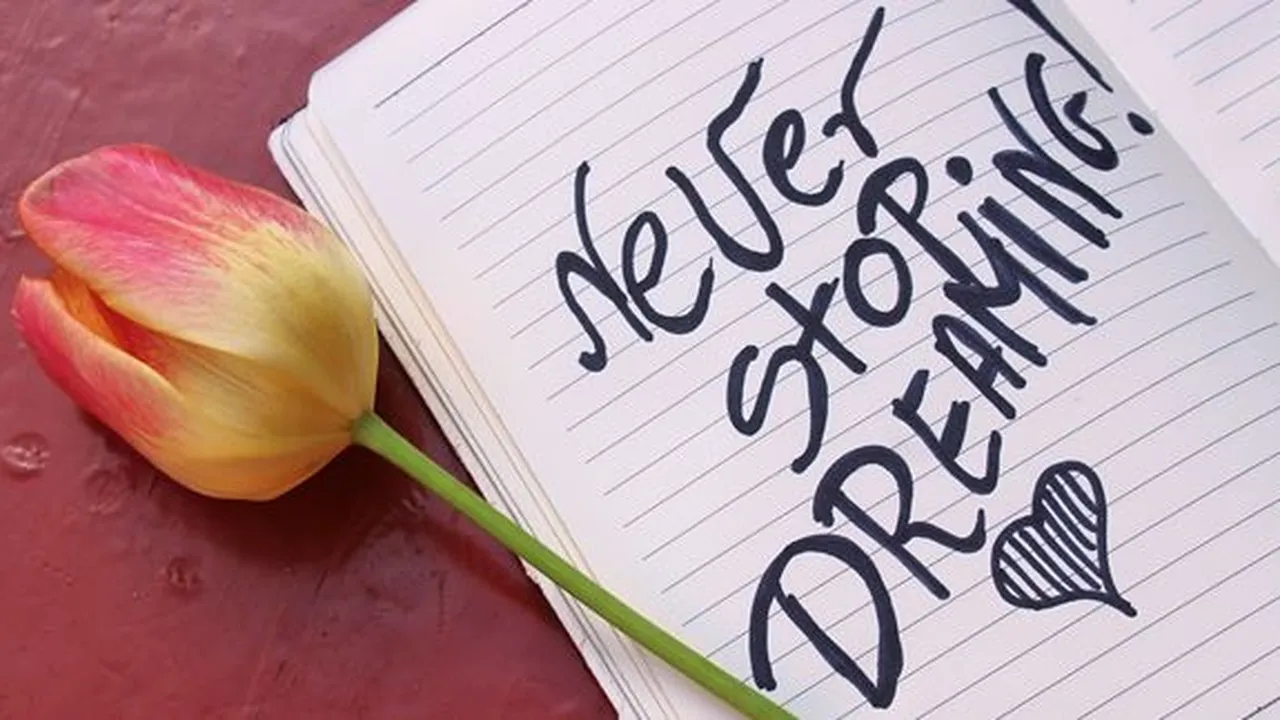 Never
stop
DREAMING!